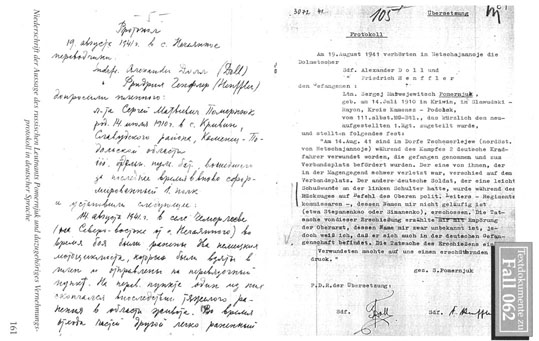 Протокол
19 августа 1941 г. в с. Нечаянное
переводчики:
Зондерф. Александер Долл (Doll)
" Фридрих Генфлер (Henffler)
допросили пленного:
л-та Сергей Матвеевич Померанюк
род. 14 июля 1910 г. в с. Кривин,
Славутского района, Каменец-По-
дольской области
и установили следующее:
14 августа 1941 г. в селе
(на Северо-востоке от с. Нечаянное) во
время боя были ранены два немецких
мотоциклиста, которые были взяты в
плен и отправлены на перевязочный
пункт. На перев. пункте один из них
скончался вследствие тяжелого ра-
нения в области живота. Во время
отхода частей другой легко раненный
Niederschrift der Aussage des russischen Leutnants Pomernjuk und dazugehöriges Vernehmungs-
protokoll in deutscher Sprache
161
105
Übersetzung
Protokoll
Am 19. August 1941 verhörten in Netschajannoje die
Dolmetscher
Sdf. Alexander Doll und
" Friedrich Henffler
den Gefangenen:
Ltn. Sergej Matwejewitsch Pomernjuk,
geb. am 14. Juli 1910 in Kriwin, im Slawudski-
Rayon, Kreis Kamenez - Podolsk,
vom 111.selbst.MG-Btl., das kürzlich dem neu-
aufgestellten 1.Rgt. zugeteilt wurde,
und stellten folgendes fest:
"Am 14.Aug. 41 sind im Dorfe (nordost.
von Netschajannoje) während des Kampfes 2 deutsche Krad-
fahrer verwundet worden, die gefangen genommen und zum
Verbandsplatz befördert wurden. Der eine von ihnen, der
in der Magengegend schwer verletzt war, verschied auf dem
Verbandsplatz. Der andere deutsche Soldat, der eine leicht
Schußwunde an der linken Schulter hatte, wurde während des
Rückzuges auf Befehl des Oberen polit. Leiters - Regiments-
kommissares -, dessen Namen mir nicht geläufig ist
(etwa Stepanenko oder Simanenko), erschossen. Die Tat-
sache von dieser Erschießung erzählte mir mit Empörung
der Oberarzt, dessen Name mir zwar unbekannt ist, je-
doch weiß ich, daß er sich auch in der deutschen Gefan-
genschaft befindet. Die Tatsache des Erschießens eines
Verwundeten machte auf uns einen erschütternden Ein-
druck."
gez. S.Pomernjuk
F.D.R.der Übersetzung:
Sdf. Doll
Sdf.
Textdokumente zu
Fall 062